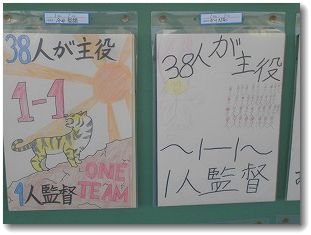 38人が主役
1-1
1人監督
ONE
TEAM
38人が主役
～1-1～
1人監督